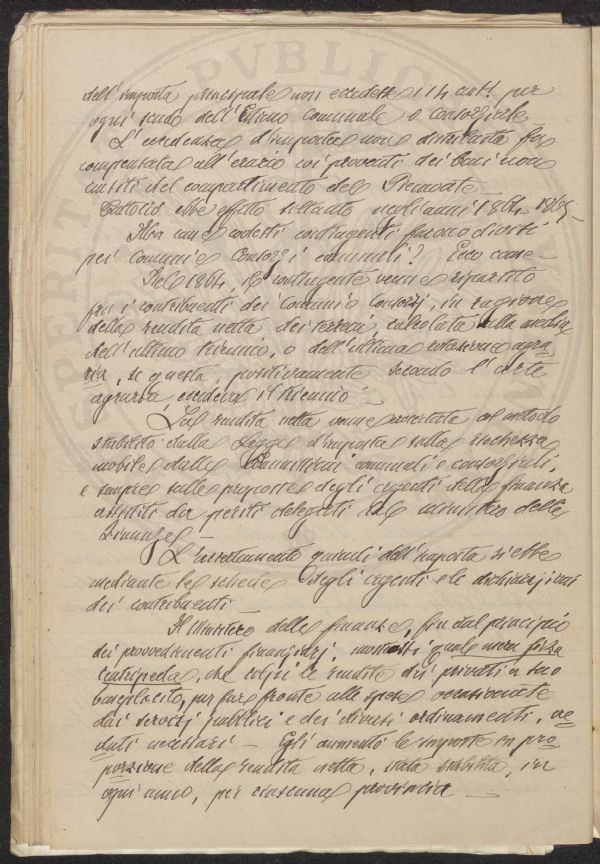 dell'imposta principale non eccedesse i 14 cent. per
ogni scudo dell'Estimo comunale o consorziale
L'eccedenza d'imposta non distribuita fu
compensata all'erario coi proventi dei beni non
censiti del compartimento del Piemonte
Tuttociò ebbe effetto soltanto negli anni 1864-1865-
Ma come codesti contingenti furono divisi
pei Comuni e Consorzi comunali? Ecco come -
Nel 1864, il contingente venne ripartito
fra i contribuenti dei Comuni o Consorzj, in ragione
della rendita netta dei terreni, calcolata sulla media
dell'ultimo triennio, o dell'ultima rotazione agra-
ria, se questa, positivamente secondo l'arte
agraria eccedeva il triennio -
La rendita netta venne accertata col metodo
stabilito dalla Legge d'imposta sulla ricchezza
mobile dalle Commissioni comunali e consorziali,
e sempre sulle proposte degli agenti della finanza
assistiti da periti delegati dal ministro delle
Finanze -
L'accertamento quindi dell'imposta si ebbe
mediante le schede degli agenti e le dichiarazioni
dei contribuenti
Il Ministero delle finanze, fin dal principio
dei provvedimenti finanziarj, mostrossi quale mera forza
centripeda, che colpì le rendite dei privati a suo
beneplacito, per fare fronte alle spese occasionate
dai servizj pubblici e dei diversi ordinamenti, cre-
duti necessari - Egli aumentò le imposte in pro-
porzione della rendita netta, stata stabilita, in
ogni anno, per ciascuna provincia -